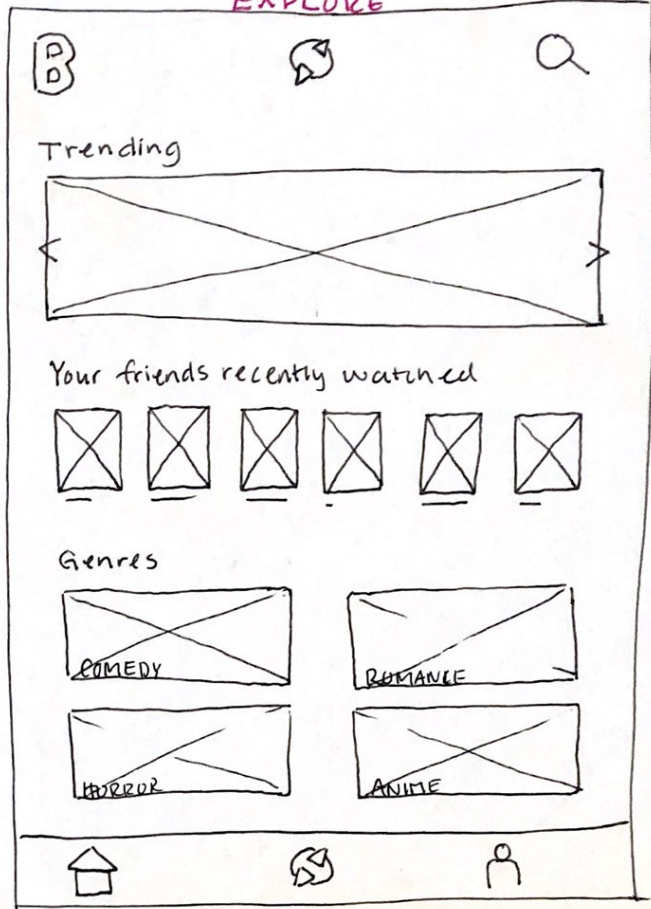 EXPLORE
B
Trending
Your friends recently watched
Genres
COMEDY
ROMANCE
HORROR
ANIME